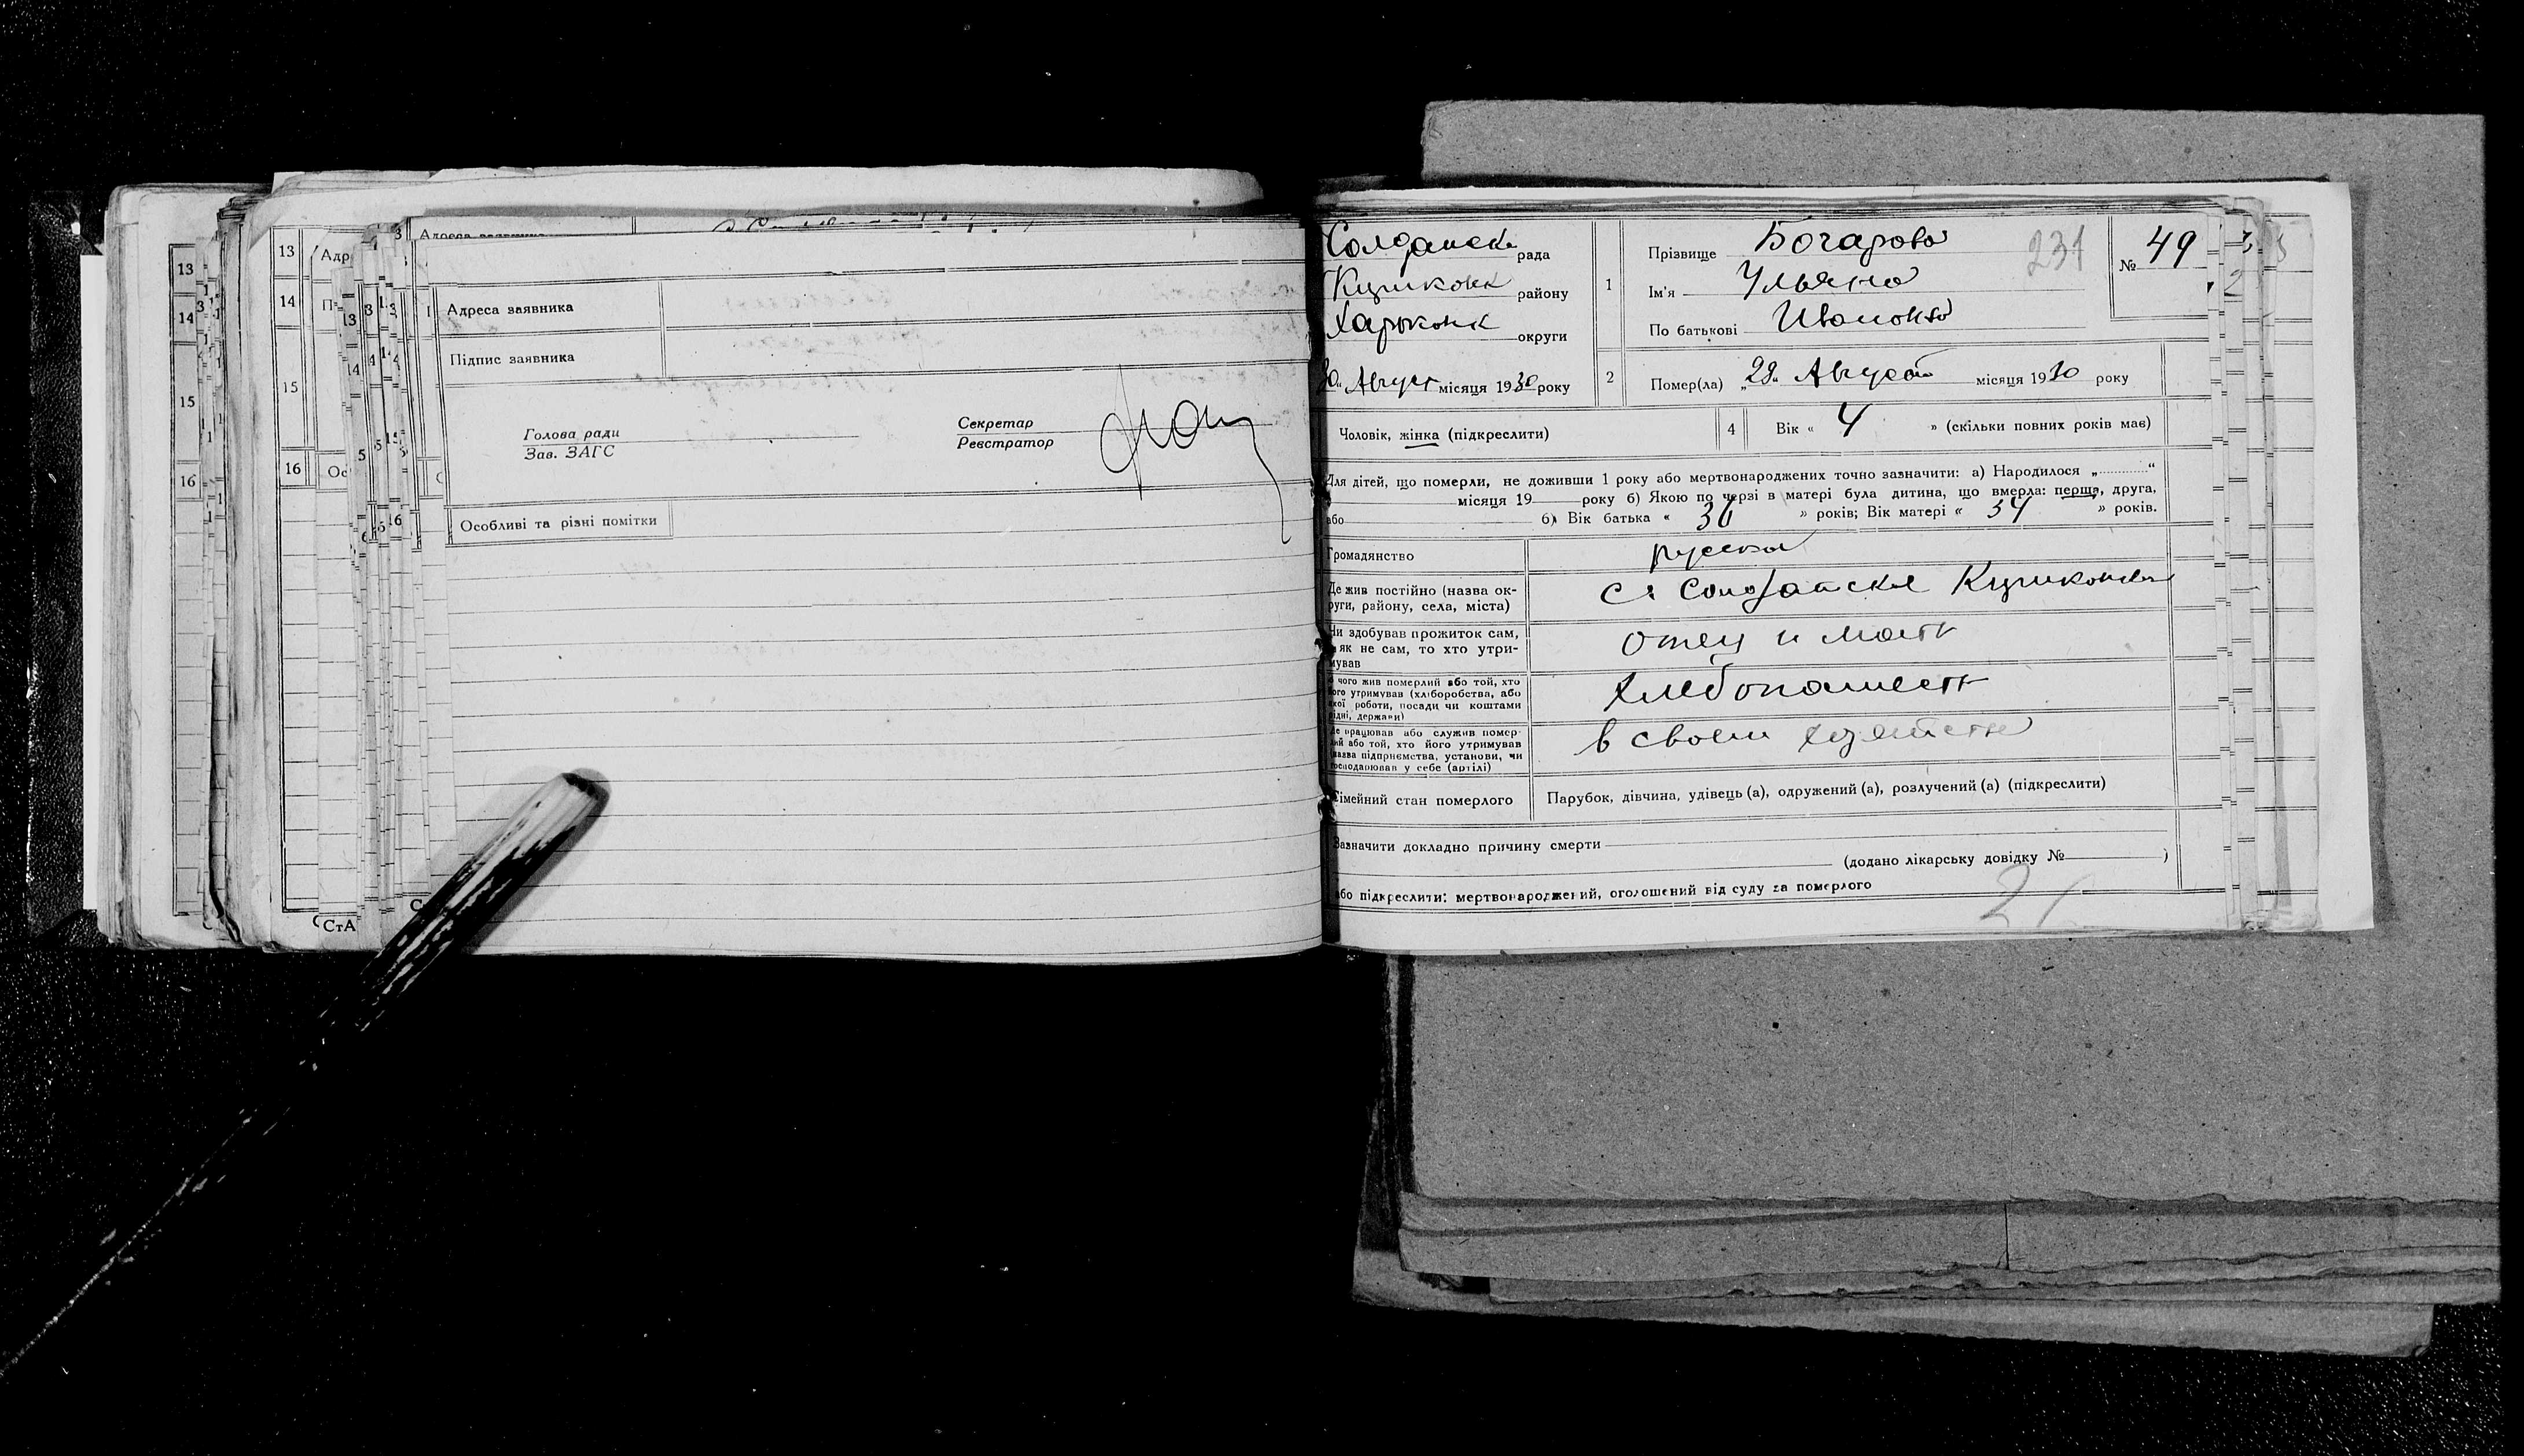 13
14
15
16
13
14
15
16
Адреса заявника
Підпис заявника
Голова ради
Зав. ЗАГС
Секретар
Реєстратор
Особливі та різні помітки
Солдатск рада
району
Харьковск округи
30 Август місяця 1930 року
1
Прізвище Бочарова
231
№ 49
Ім'я Ульяна
По батькові Ивановна
2
Помер(ла) „28„ Август місяця 1930 року
Чоловік, жінка (підкреслити)
4
Вік « 4 » (скільки повних років має)
Для дітей, що померли, не доживши 1 року або мертвонароджених точно зазначити: а) Народилося „ “
місяця 19 року б) Якою по черзі в матері була дитина, що вмерла: перша, друга,
або б) Вік батька « 36 » років; Вік матері « 34 » років.
Громадянство
русская
Де жив постійно (назва ок-
руги, району, села, міста)
с.
Чи здобував прожиток сам,
а як не сам, то хто утри-
мував
отец и мать
З чого жив померлий або той, хто
його утримував (хліборобства, або
якої роботи, посади чи коштами
рідні, держави)
хлебопашест
Де працював або служив помер-
лий або той, хто його утримував
(назва підприємства, установи, чи
господарював у себе (артілі)
в своем
Сімейний стан померлого
Парубок, дівчина, удівець (а), одружений (а), розлучений (а) (підкреслити)
Зазначити докладно причину смерти
(додано лікарську довідку № )
або підкреслити: мертвонароджений, оголошений від суду за померлого